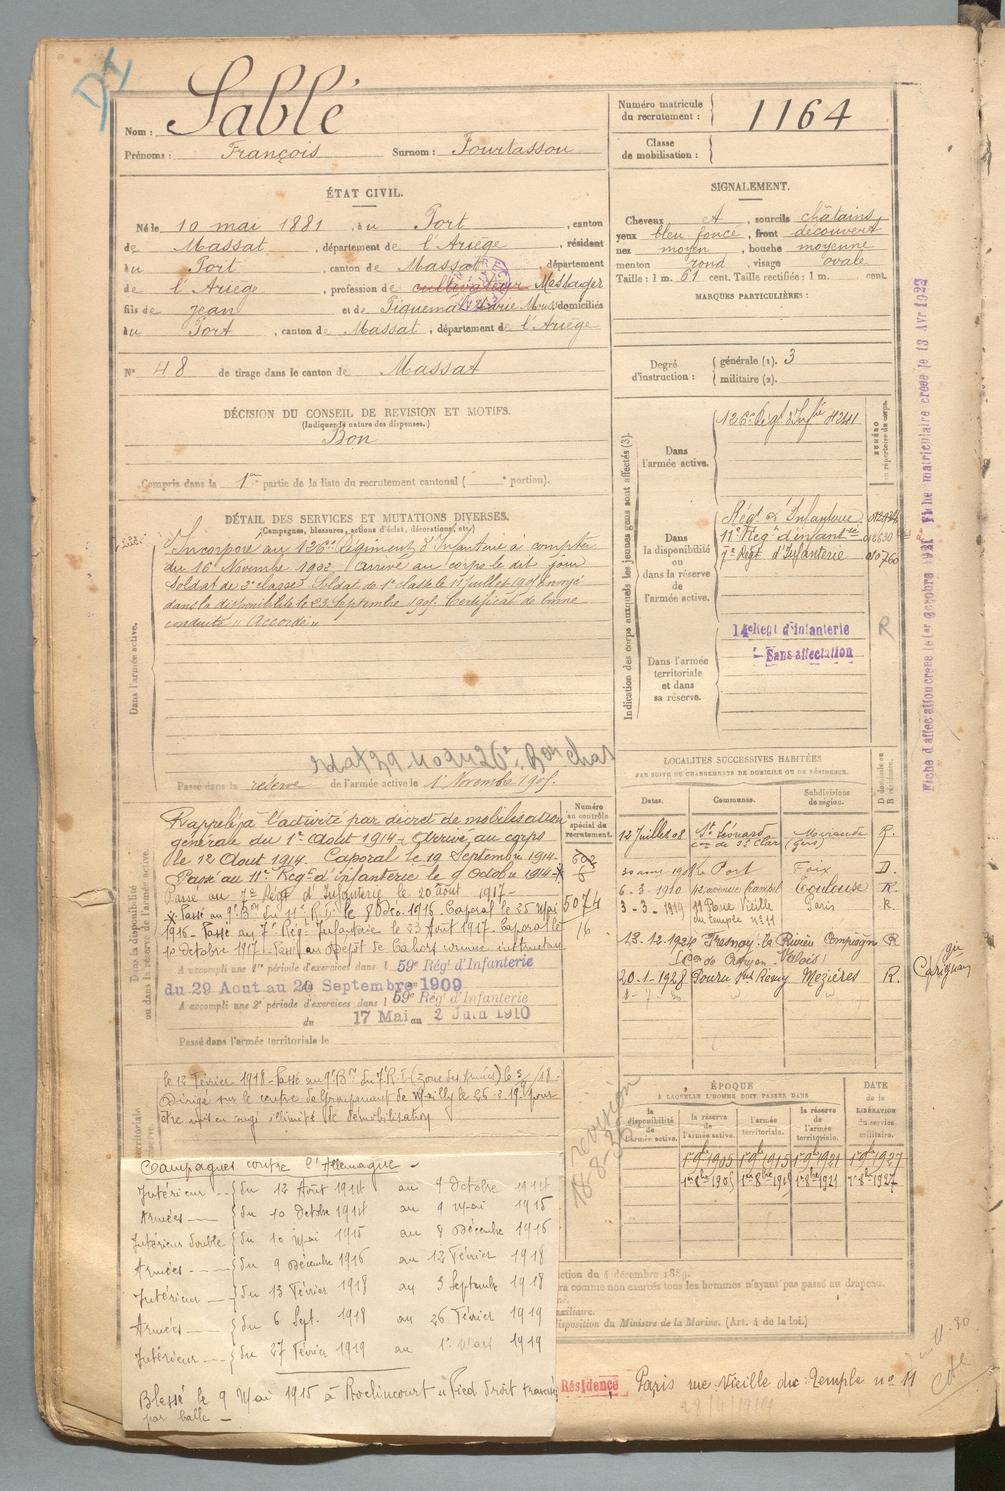 DI
Nom : Sablé
Prénoms : François Surnom : Fourtassou
Numéro matricule du recrutement : 1164
Classe de mobilisation :
ÉTAT CIVIL.
Né le 10 mai 1881, à u Port, canton
de Massat, département de l'Ariège, résidant
à u Port, canton de Massat, département
de l'Ariège, profession de cultivateur Messager
fils de Jean et de Piquemal Marie domiciliés
à u Port, canton de Massat, département de l'Ariège
N° 48 de tirage dans le canton de Massat
DÉCISION DU CONSEIL DE REVISION ET MOTIFS.
(Indiquer la nature des dispenses.)
Bon
Compris dans la 1re partie de la liste du recrutement cantonal ( e portion).
SIGNALEMENT.
Cheveux et, sourcils châtains
yeux bleu foncé, front découvert
nez moyen, bouche moyenne
menton rond, visage ovale
Taille : 1 m. 61 cent. Taille rectifiée : 1 m. cent.
MARQUES PARTICULIÈRES :
Degré d'instruction : générale (1). 3
militaire (2).
DÉTAIL DES SERVICES ET MUTATIONS DIVERSES.
(Campagnes, blessures, actions d'éclat, décorations, etc.)
Dans l'armée active.
Incorporé au 126e Régiment d'Infanterie à compter
du 16 Novembre 1902, arrivé au corps le dit jour
Soldat de 2e classe. Soldat de 1re classe le 11 Juillet 1905 Envoyé
dans la disponibilité le 23 Septembre 1905. Certificat de bonne
conduite « Accordé »
Passé dans la réserve de l'armée active le 1er Novembre 1905.
Indication des corps auxquels les jeunes gens sont affectés (3).
NUMÉRO au répertoire du corps.
Dans l'armée active. 126e Régt d'Infie
Dans la disponibilité ou dans la réserve de l'armée active.
Régt d'Infanterie
11e Rég d'infanterie
7e Régt d'Infanterie
Dans l'armée territoriale et dans sa réserve.
14e Regt d'Infanterie
Sans affectation
R
Fiche matriculaire créée le 13 Avr 1923
Dans la disponibilité ou dans la réserve de l'armée active.
Rappelé à l'activité par décret de mobilisation
générale du 1er Août 1914 - Arrivé au corps
le 12 Août 1914. Caporal le 19 Septembre 1914.
Passé au 11e Régt d'infanterie le 9 Octobre 1914 -
Passé au 7e Régt d'Infanterie le 20 août 1917 -
Passé au 9e Bon du 11e R.I. le 8 Déc. 1916. Caporal le 25 Mai
1916 - Passé au 7e Rég. Infanterie le 23 Août 1917. Caporal le
10 octobre 1917. Passé au Dépôt de Cahors comme instructeur
A accompli une 1re période d'exercices dans l 59e Rég' d'Infanterie
du 29 Aout au 20 Septembre 1909
A accompli une 2e période d'exercices dans l 59e Rég' d'Infanterie
du 17 Mai au 2 Juin 1910
Passé dans l'armée territoriale le
Numéro au contrôle spécial du recrutement.
5074
16
LOCALITÉS SUCCESSIVES HABITÉES
PAR SUITE DE CHANGEMENTS DE DOMICILE OU DE RÉSIDENCE.
Dates. Communes. Subdivisions de région. D domicile ou R résidence.
12 Juillet 08 St Léonard con de St Clar Mirande (Gers) R.
le Port Foix D.
6-3-1910 Toulouse R
3-3-1919 11 Rue Vieille du temple n° 11 Paris R.
Fresnoy la Rivière Compiègne R
Con de Crépy en Valois
20-1-1928 Pouru St Remy Mézières R.
Carignan
le 12 Février 1918 - Passé au 9e Bon du 7e R.I. (zone des Armées)
Dirigé sur le centre de Groupement de Mailly le 26-2-19 pour
être mis en congé illimité de démobilisation
revision
ÉPOQUE
À LAQUELLE L'HOMME DOIT PASSER DANS
DATE DE LA LIBÉRATION du service militaire.
la disponibilité de l'armée active. la réserve de l'armée active. l'armée territoriale. la réserve de l'armée territoriale.
Campagnes contre l'Allemagne -
Intérieur du 12 Août 1914 au 9 Octobre 1914
Armées du 10 Octobre 1914 au 9 Mai 1915
Intérieur double du 10 Mai 1915 au 8 Décembre 1916
Armées du 9 Décembre 1916 au 12 Février 1918
Intérieur du 13 Février 1918 au 5 Septembre 1918
Armées du 6 Sept. 1918 au 26 Février 1919
Intérieur du 27 Février 1919 au 1er Mars 1919
Blessé le 9 Mai 1915 à Roclincourt « Pied droit traversé
par balle -
ction du 4 décembre 1889.
ra comme non exercés tous les hommes n'ayant pas passé au drapeau.
auxiliaire.
disposition du Ministre de la Marine. (Art. 4 de la loi.)
Résidence Paris rue Vieille du Temple n° 11